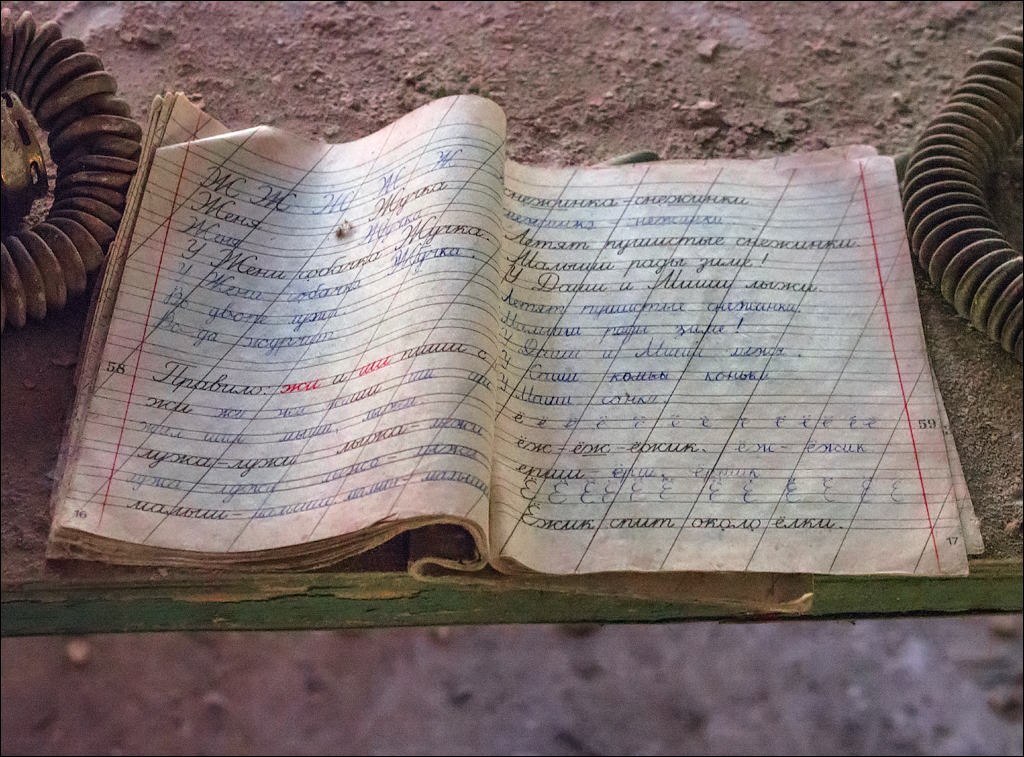 Ж Ж Ж Ж Ж
Женя Жучка
Женя Жучка
У Жени собачка Жучка.
У Жени собачка Жучка.
Во дворе лужи
Вода журчит
58 Правило: жи и ши пиши с
жи жи жи
жил шил мыши, лыжи.
лужа-лужи лыжа-лыжи
лужа лужи лыжа-лыжи
малыш-малыши малыш-малыши
16
снежинка-снежинки
снежинка снежинки
Летят пушистые снежинки.
Малыши рады зиме!
У Даши и Миши лыжи.
Летят пушистые снежинки.
Малыши рады зиме!
У Даши и Миши лыжи.
У Саши коньки
У Маши
ё ё ё ё ё ё ё ё ё ё ё ё 59
ёж-ёж-ёжик. ёж-ёжик
ерши-ерш. ершик
Ё Ё Ё Ё Ё Ё Ё Ё Ё Ё Ё
Ёжик спит около ёлки.
17